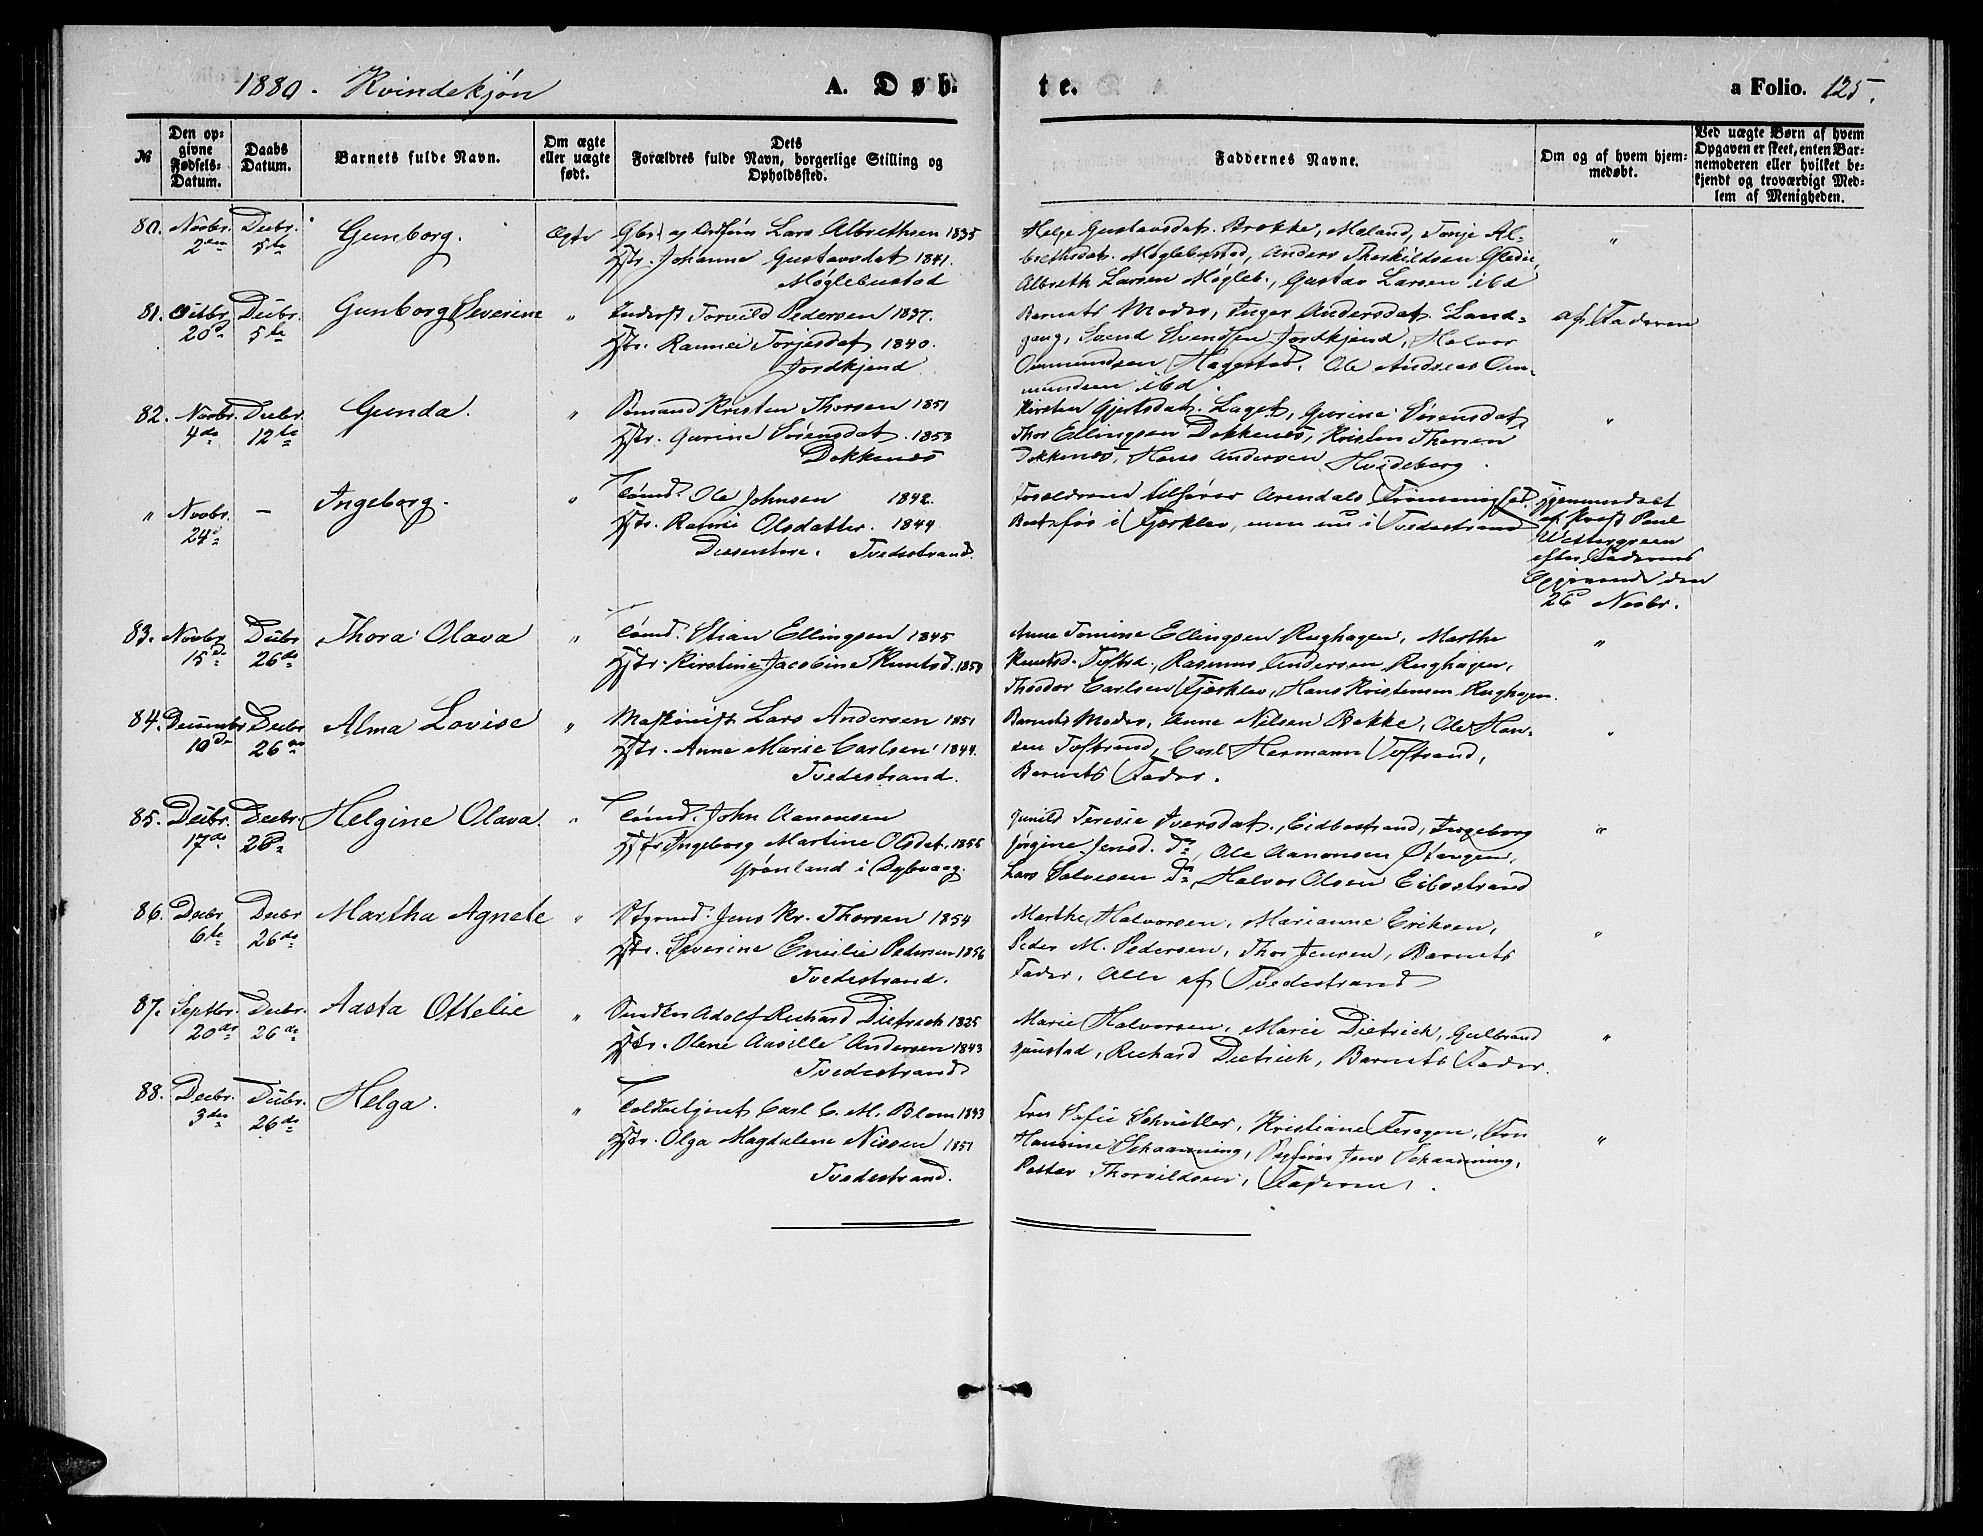 1880. Kvindekjøn
A. Døb-
te.
a Folio. 125.
№
Den op-
givne
Fødsels-
Datum.
Daabs
Datum.
Barnets fulde Navn.
Om ægte
eller uægte
født.
Dets
Forældres fulde Navn, borgerlige Stilling og
Opholdssted.
Faddernes Navne.
Om og af hvem hjem-
medøbt.
Ved uægte Børn af hvem
Opgaven er skeet, enten Bar-
nemoderen eller hvilket be-
kjendt og troværdigt Med-
lem af Menigheden.
80. Novbr. 2den Decbr. 5te Gunborg. Ægte Gbr. og Lars Albrethsen 1835
Hstr. Johanne Gustavsdat 1841.
Møglebustad
Helje Gustavsdat. Brække, Møland, Tonje Al-
brethsdat. Møglebustad, Anders Therkildsen
Albreth Larsen Mögleb., Gustav Larsen ibd
"
81. Octbr. 20d Decbr. 5te Gunborg Severine " Inderst Torvild Pedersen 1837.
Hstr. Rannei Torjesdat 1840.
Jordkjend
Barnets Moder, Inger Andersdat. Land-
gang, Svend Svendsen Jordkjend, Halvor
Ommundsen Hagestad. Ole Andreas Om-
mundsen ibd.
af Faderen
82. Novbr. 4de Decbr. 12te Gunda. " Sømand Kristen Thorsen 1851
Hstr. Gurine Sörensdat. 1853
Dokkenes
Kirsten Gjertsdat. Laget, Gurine Sörensdat
Thor Ellingsen Dokkenes, Kristen Thorsen
Dokkenes, Hans Andersen Hvideberg.
"
" Novbr. 24d – Ingeborg. " Tömd. Ole Johnsen 1842.
Hstr. Rannie Olsdatter. 1844
Tvedestrand.
Forældrene tilhører Arendals
i Fjerklev, men nu i Tvedestrand
Hjemmedøbt
af Paul
Westergreen
efter Faderens
Opgivende den
26 Novbr.
83. Novbr. 15de Decbr. 26de Thora Olava " Tömd. Stian Ellingsen 1845
Hstr. Kirstine Jacobine Knutsd. 1850
Anne Tomine Ellingsen Rughagen, Marthe
Knutsd. Toftsd., Rasmus Andersen Rughagen,
Theodor Carlsen Fjerklev, Hans Kristensen Rughagen.
"
84. Decembr 10de Decbr 26de Alma Lovise " Maskinist Lars Andersen 1851
Hstr. Anne Marie Carlsen 1844.
Tvedestrand.
Barnets Moder, Anne Nilsen Bakke, Ole Han-
sen Toftsand, Carl Hermann Toftsand,
Barnets Fader.
"
85. Decbr. 17de Decbr. 26 Helgine Olava. " Tömd. John Aanonsen
Hstr Ingeborg Martine Olsdat. 1855
Grönland i Dybvaag.
Gunild Teresie Iversdat., Eidbostrand, Ingeborg
Jörgine Jensd. do, Ole Aanonsen Ötangen,
Lars Salvesen do, Halvor Olsen Eibostrand
"
86. Decbr 6te Decbr 26de Martha Agnete " Styrmd. Jens Kr. Thorsen 1854
Hstr. Severine Emilie Pedersen 1856
Tvedestrand.
Marthe Halvorsen, Marianne Eriksen,
Peder M. Pedersen, Thor Jensen, Barnets
Fader, Alle af Tvedestrand
"
87. Septbr. 20de Decbr. 26de Aasta Ottelie " Svendlus Adolf Richard Dietrich 1825
Hstr. Olene Aasille Andersen 1843
Tvedestrand
Marie Halvorsen, Marie Dietrich, Gulbrand
Richard Dietrich, Barnets Fader.
"
88. Decbr. 3die Decbr. 26de Helga. " Toldbetjent Carl C. M. Blom 1843
Hstr. Olga Magdalene Nissen 1851
Tvedestrand.
Fru Sofie Schnitler, Kristiane Feragen, Fru
Hansine Schaanning, Jens Schaanning,
Peder Thorvildsen, Faderen.
"